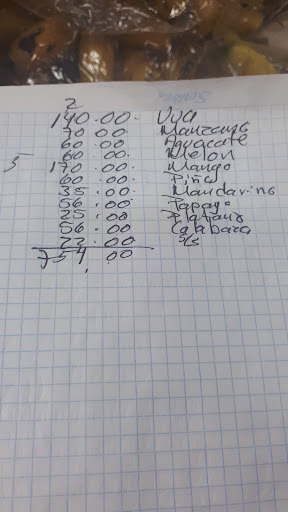 2
140.00. Uva
70 00 Manzana
60.00 Aguacate
60.00. Melon
170.00. Mango
60.00. Piña
35.00. Mandarina
56.00 Papaya
25.00 Platano
56.00 Calabaza
22.00
754 00